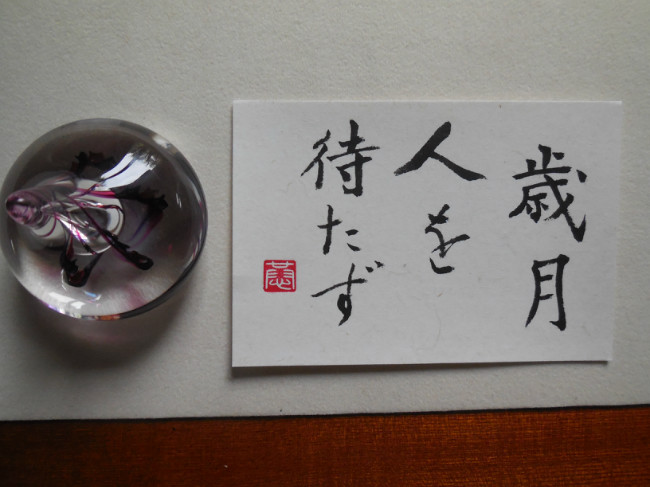 歳月
人を
待たず